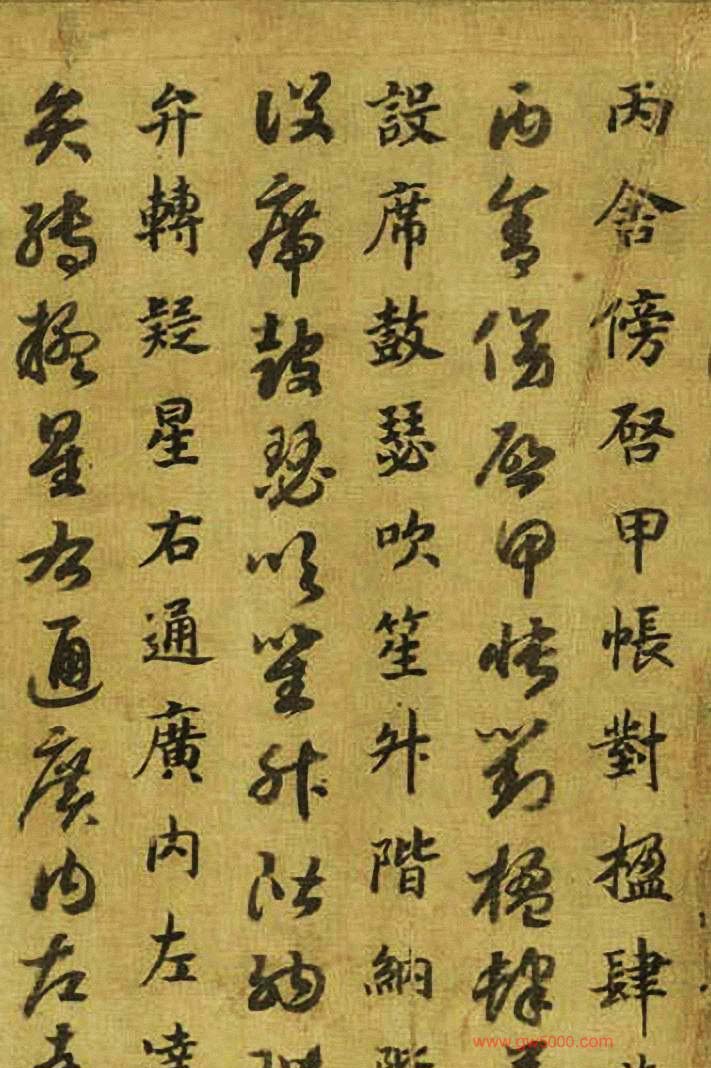 丙舍傍啓甲帳對楹肆
丙舍傍啓甲帳對楹肆
設席鼓瑟吹笙升階納
設席鼓瑟吹笙升階納
弁轉疑星右通廣內左達
弁轉疑星右通廣內左